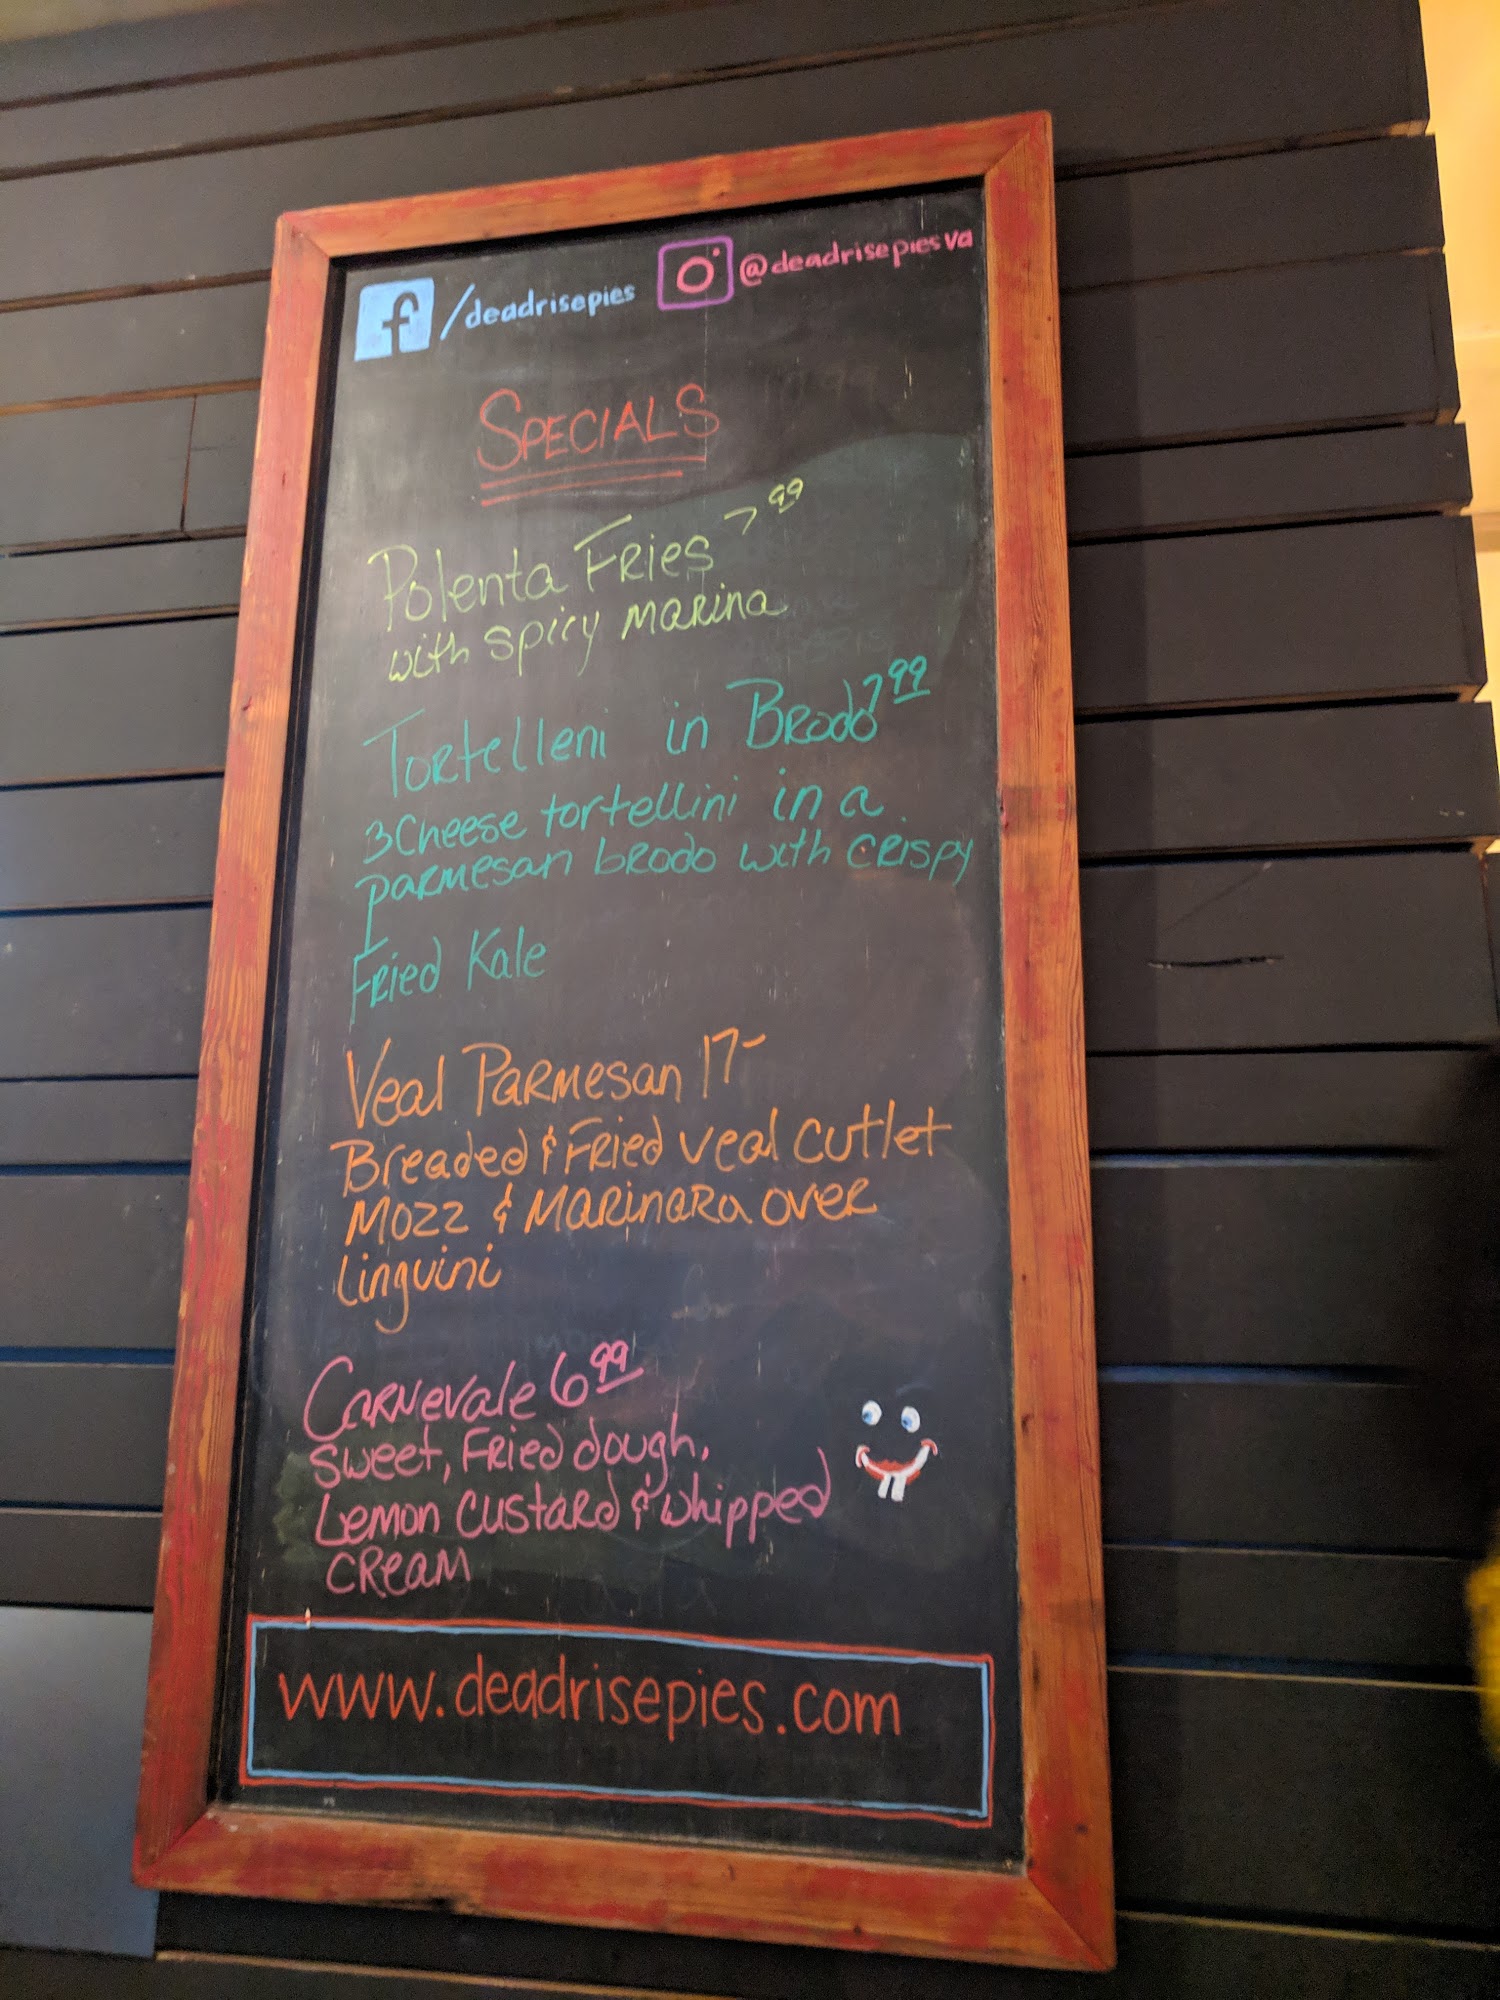 f /deadrisepies @deadrisepiesva
SPECIALS
Polenta Fries 7 99
with spicy marina
Tortelleni in Brodo 7 99
3 Cheese tortellini in a
parmesan brodo with crispy
Fried Kale
Veal Parmesan 17-
Breaded & Fried veal cutlet
Mozz & Marinara over
Linguini
Carnevale 6 99
Sweet, Fried dough,
Lemon Custard & whipped
cream
www.deadrisepies.com